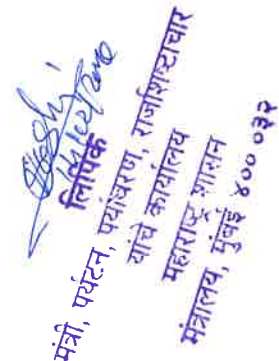 लिपिक
मंत्री, पर्यटन, पर्यावरण, राजशिष्टाचार
यांचे कार्यालय
महाराष्ट्र शासन
मंत्रालय, मुंबई ४०० ०३२